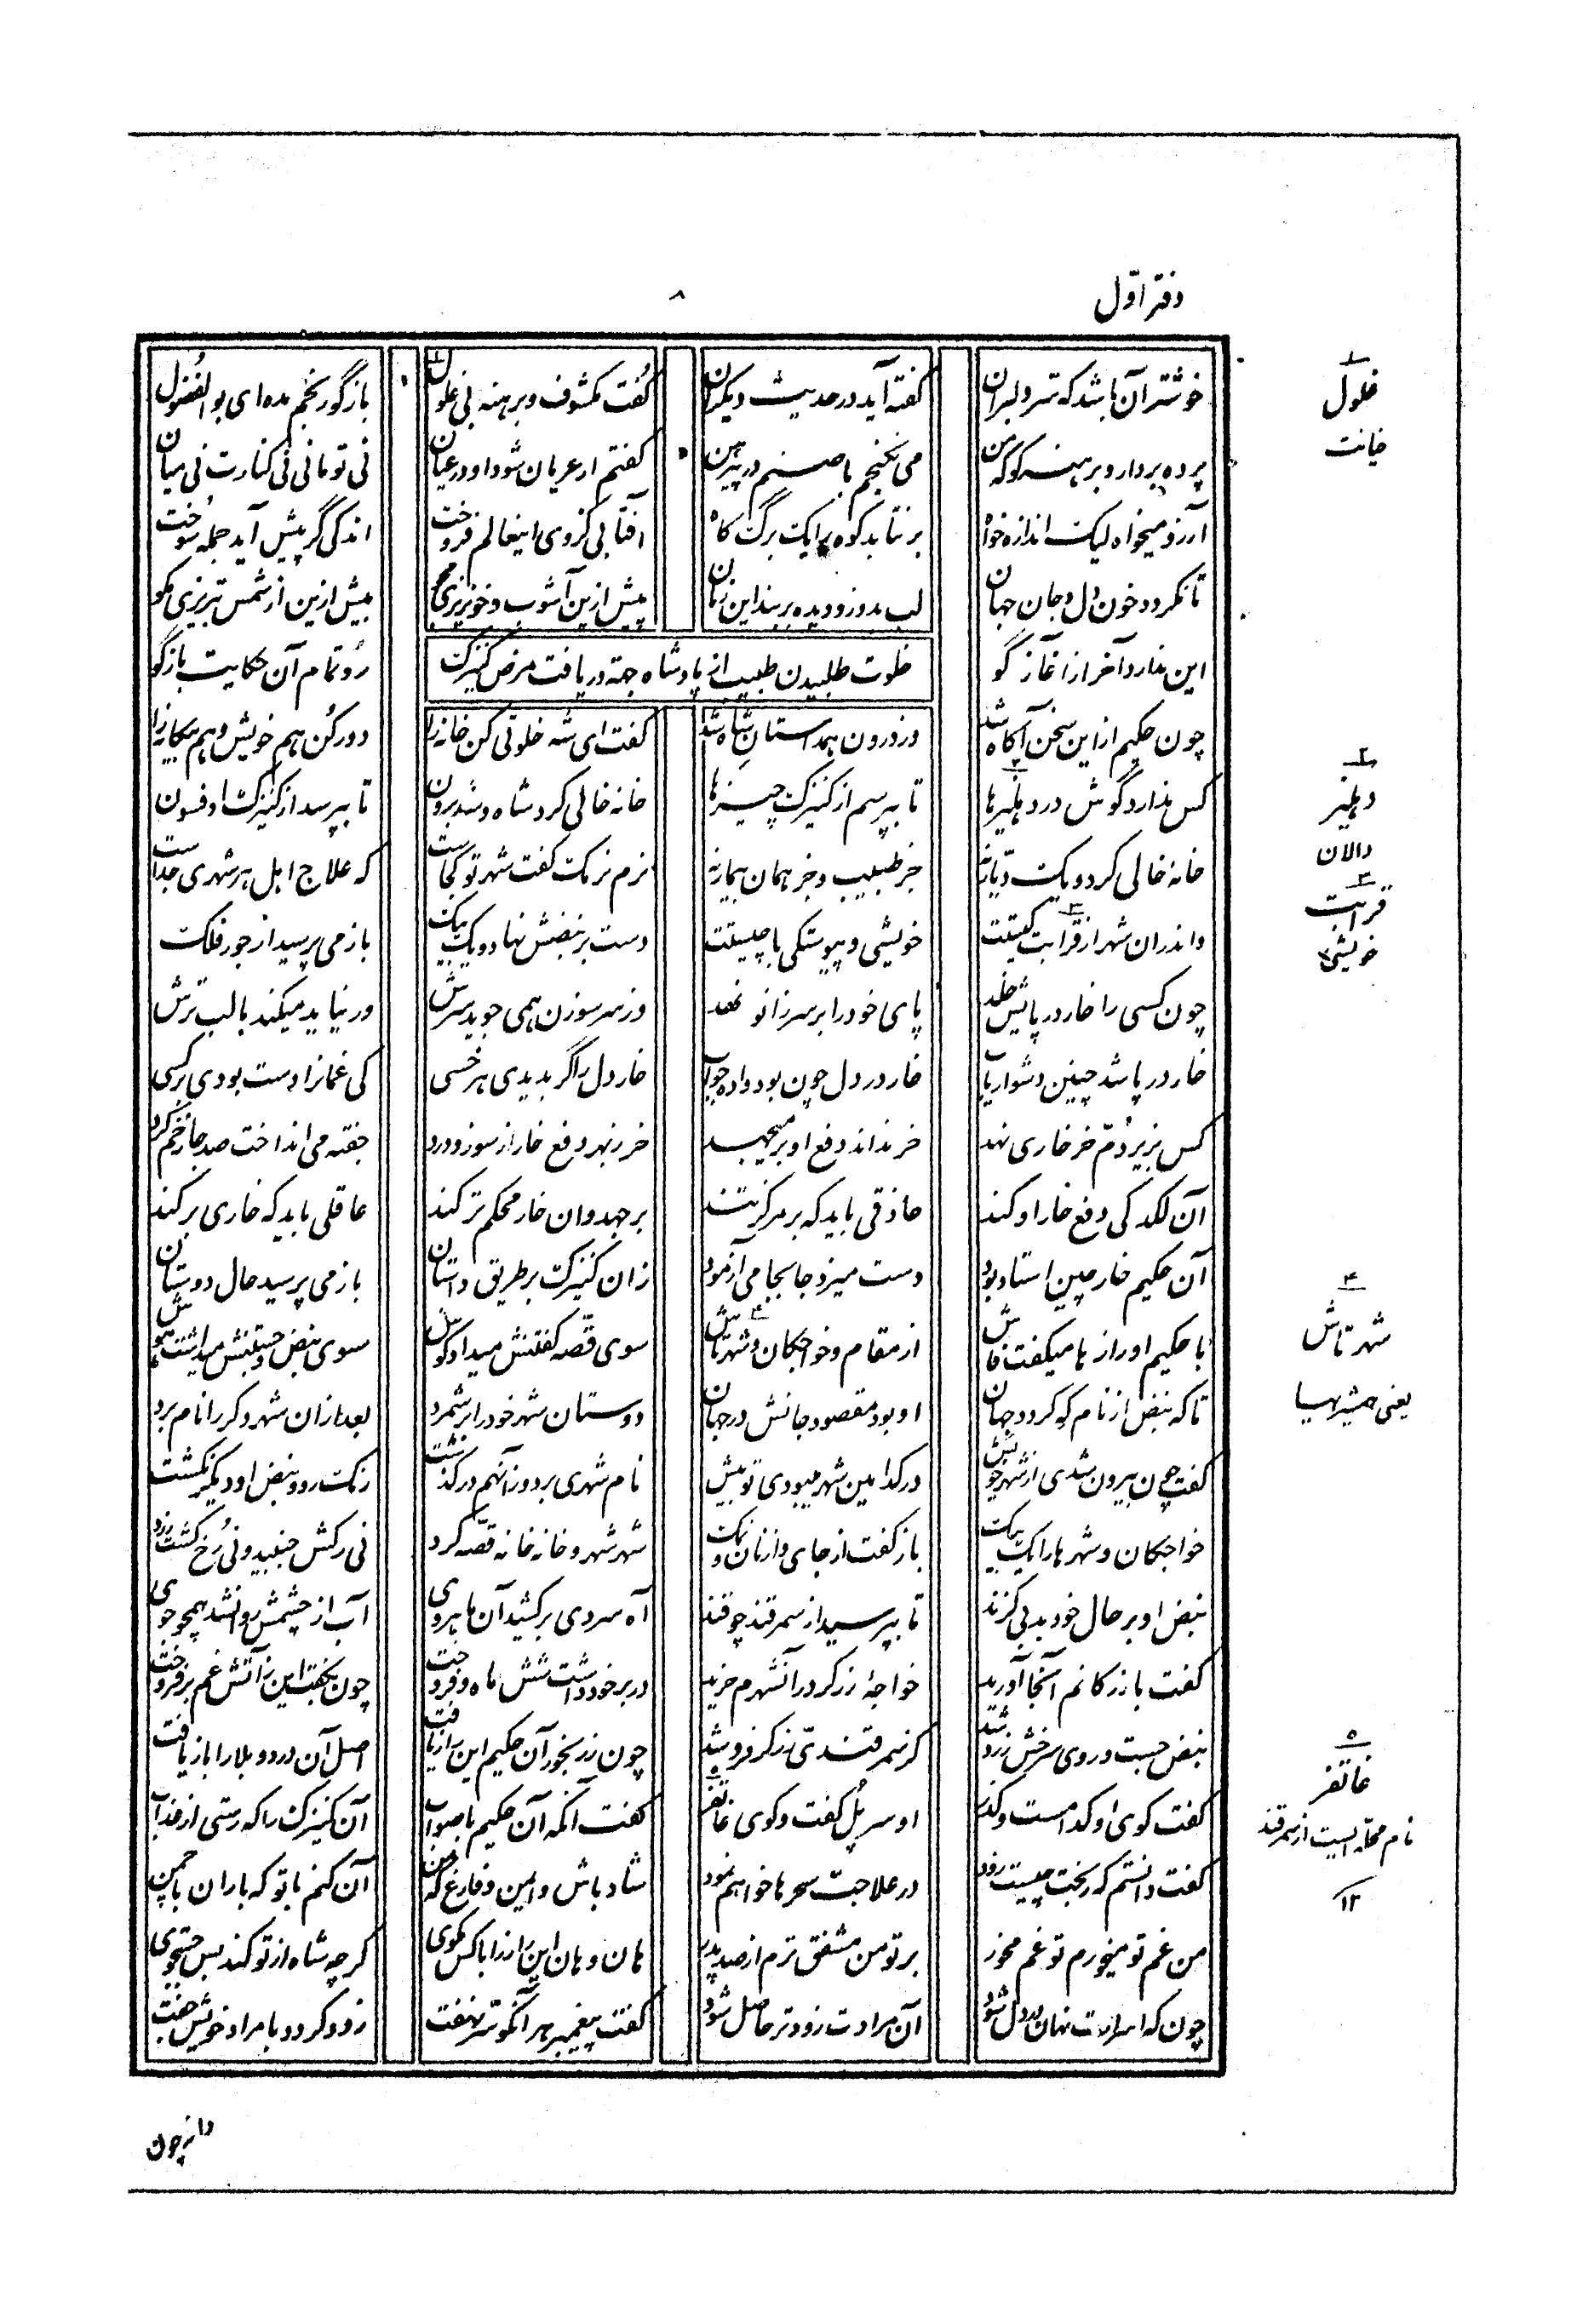 دفتر اوّل
۸
خوشتر آن باشد که سرّ دلبران گفته آید در حدیث دیگران گفت مکشوف و برهنه بی غلول بازگو رنجم مده ای بوالفضول
پرده بردار و برهنه گو که من می نگنجم با صنم در پیرهن گفتم ار عریان شود او در عیان نی تو مانی نی کنارت نی میان
آرزو میخواه لیک اندازه خواه برنتابد کوه را یک برگ کاه آفتابی کز وی اینعالم فروخت اندکی گر پیش آید جمله سوخت
تا نگردد خون دل و جان جهان لب بدوز و دیده بربند این زمان پیش ازین آشوب و خونریزی مجو بیش ازین از شمس تبریزی مگو
این ندارد آخر از آغاز گو رو تمام آن حکایت بازگو
خلوت طلبیدن طبیب از پادشاه جهة دریافت مرض کنیزک
چون حکیم از این سخن آگاه شد وز درون همداستان شاه شد گفت ای شه خلوتی کن خانه را دور کن هم خویش و هم بیگانه را
کس ندارد گوش در دهلیزها تا بپرسم از کنیزک چیزها خانه خالی کرد شاه و شد برون تا بپرسد از کنیزک او فسون
خانه خالی کرد و یک دیّار نه جز طبیب و جز همان بیمار نه نرم نرمک گفت شهر تو کجاست که علاج اهل هر شهری جداست
واندران شهر از قرابت کیستت خویشی و پیوستگی با چیستت دست بر نبضش نهاد و یک بیک باز می پرسید از جور فلک
چون کسی را خار در پایش خلد پای خود را بر سر زانو نهد وز سر سوزن همی جوید سرش ور نیابد میکند با لب ترش
خار در پا شد چنین دشواریاب خار در دل چون بود واده جواب خار دل را گر بدیدی هر خسی کی غمانرا دست بودی بر کسی
کس بزیر دمّ خر خاری نهد خر نداند دفع او بر میجهد خر ز بهر دفع خار از سوز و درد جفته می انداخت صد جا زخم کرد
آن لگد کی دفع خار او کند حاذقی باید که بر مرکز تند بر جهد وان خار محکمتر کند عاقلی باید که خاری برکند
آن حکیم خارچین استاد بود دست میزد جابجا می آزمود زان کنیزک بر طریق داستان باز می پرسید حال دوستان
با حکیم او رازها میگفت فاش از مقام و خواجگان و شهرتاش سوی قصّه گفتنش میداد گوش سوی نبض و جستنش میداشت هوش
تا که نبض از نام که گردد جهان او بود مقصود جانش در جهان دوستان شهر خود را برشمرد بعد ازان شهر دگر را نام برد
گفت چون بیرون شدی از شهر خویش در کدامین شهر میبودی تو بیش نام شهری برد و زانهم درگذشت رنگ رو و نبض او دیگر نگشت
خواجگان و شهرها را یک بیک باز گفت از جای و از نان و نمک شهر شهر و خانه خانه قصّه کرد نی رگش جنبید و نی رخ گشت زرد
نبض او بر حال خود بد بی گزند تا بپرسید از سمرقند چو قند آه سردی برکشید آن ماهروی آب از چشمش روانشد همچو جوی
گفت بازرگانم آنجا آورید خواجۀ زرگر در آنشهرم خرید در بر خود داشت شش ماه و فروخت چون بگفت این ز آتش غم برفروخت
نبض جست و روی سرخش زرد شد کز سمرقندیّ زرگر فرد شد چون ز رنجور آن حکیم این راز یافت اصل آن درد و بلا را بازیافت
گفت کوی او کدامست و گذر او سر پل گفت و کوی غاتفر گفت آنگه آن حکیم با صواب آن کنیزک را که رستی از عذاب
گفت دانستم که رنجت چیست زود در علاجت سحرها خواهم نمود شاد باش و ایمن و فارغ که من آن کنم با تو که باران با چمن
من غم تو میخورم تو غم مخور بر تو من مشفق ترم از صد پدر هان و هان این راز را با کس مگوی گرچه شاه از تو کند بس جستجوی
چون که اسرارت نهان در دل شود آن مرادت زودتر حاصل شود گفت پیغمبر هر آنکو سر نهفت زود گردد با مراد خویش جفت
۱
غلول
خیانت
۲
دهلیز
دالان
۳
قرابت
خویشی
۴
شهرتاش
یعنی همشهریها
۵
غاتفر
نام محله ایست از سمرقند
۱۲
دانه چون